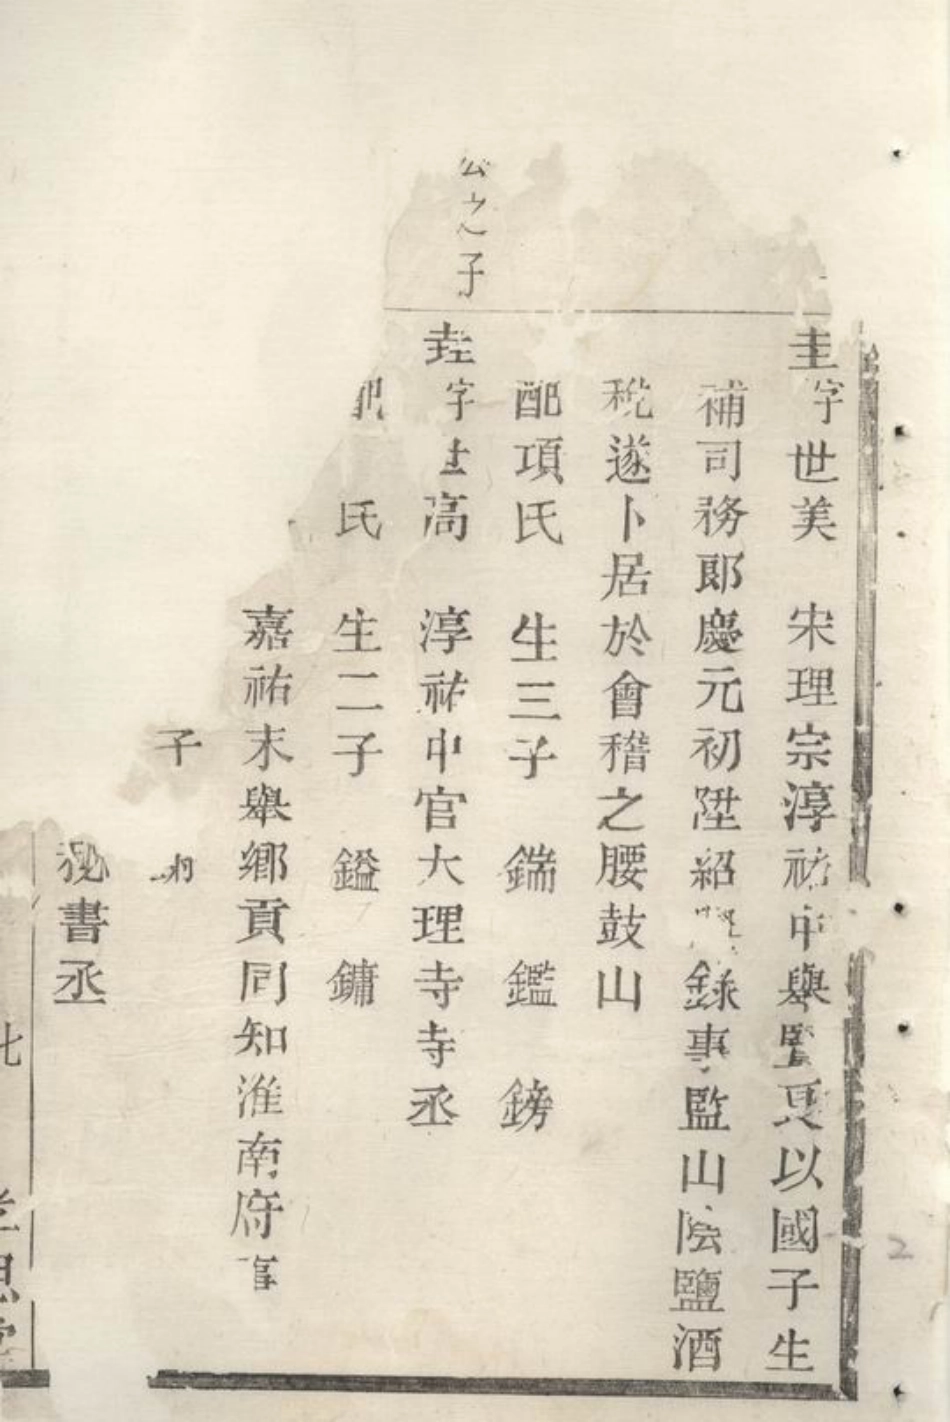 圭字世美　宋理宗淳祐中舉賢良以國子生
補司務郎慶元初陞紹興錄事監山陰鹽酒
稅遂卜居於會稽之腰鼓山
配項氏　生三子　鍴　鑑　鎊
公之子
垚字世高　淳祐中官大理寺寺丞
配　氏　生二子　鎰　鏞
嘉祐末舉鄉貢同知淮南府事
子
秘書丞